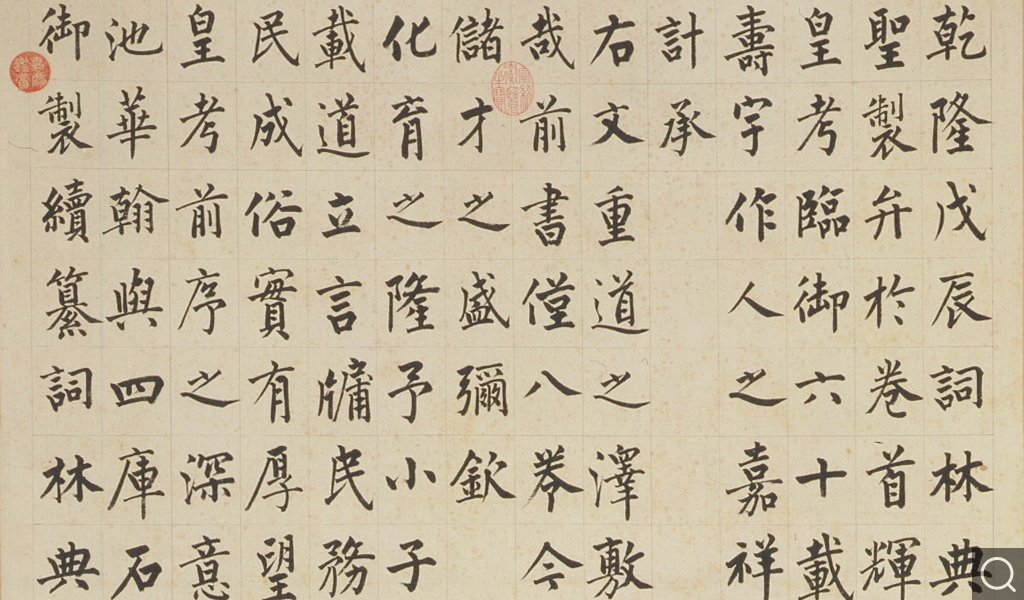 乾隆戊辰詞林典
聖製弁於卷首輝
皇考臨御六十載
壽宇作人之嘉祥
計承
右文重道之澤敷
哉前書僅八卷今
儲才之盛彌欽
化育之隆予小子
載道立言牖民務
民成俗實有厚望
皇考前序之深意
池華翰與四庫石
御製續纂詞林典